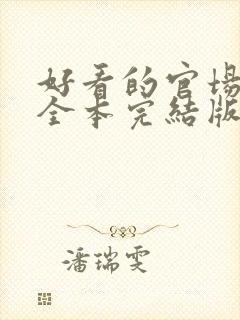 好看的官場
全本完結版
潘瑞雯